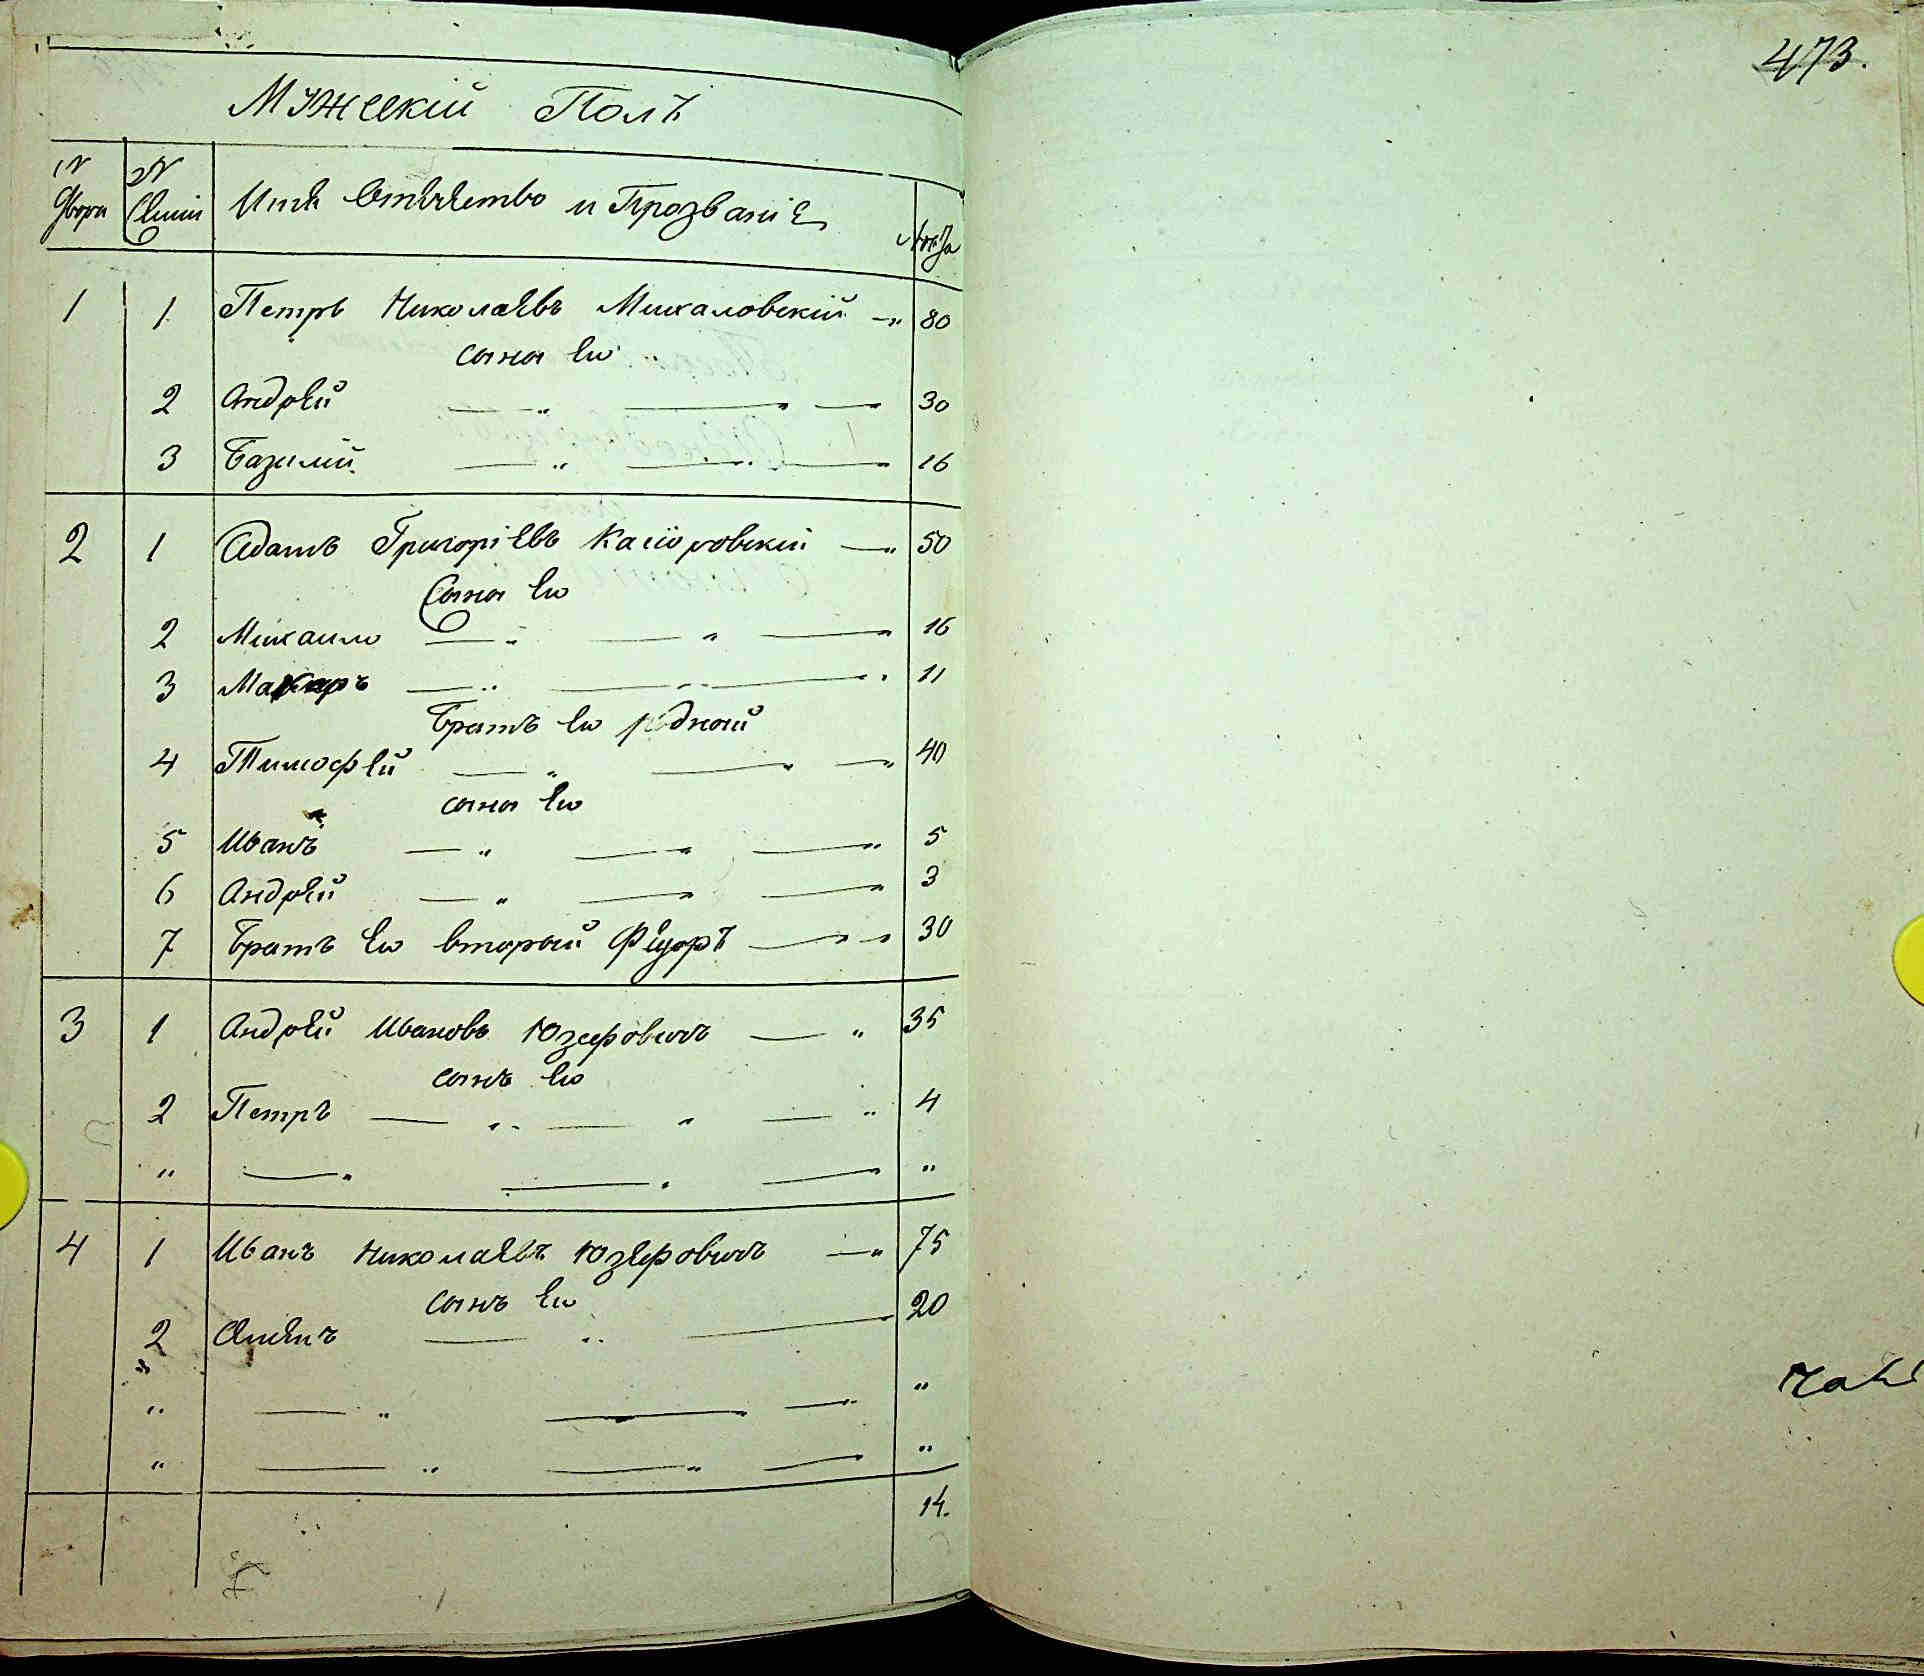 473.
Мужескій Полъ
№ Двора № Семіи Имя Отечество и Прозваніе Лѣта
1 1 Петръ Николаевъ Михаловскій —„ 80
сыны Ево
2 Андрей — „ — „ — 30
3 Базилій — „ — „ — 16
2 1 Адамъ Григоріевъ —„ 50
Сыны Ево
2 Михаило — „ — „ — 16
3 Макаръ — „ — „ — 11
Братъ Ево родный
4 Тимофей — „ — „ — 40
сыны Ево
5 Иванъ — „ — „ — „ 5
6 Андрей — „ — „ — „ 3
7 Братъ Ево вторый Фёдоръ — „ 30
3 1 Андрей Ивановъ Юзефовичъ — „ 35
сынъ Ево
2 Петръ — „ — „ — „ 4
„ — „ — „ — „
4 1 Иванъ Николаевъ Юзефовичъ —„ 75
сынъ Ево
2 — „ — 20
„ — „ — „ — „
„ — „ — „ — „
14.